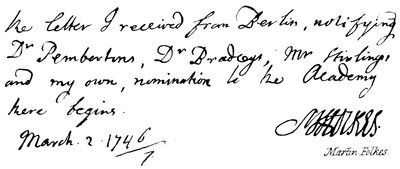 the letter I received from Berlin, notifying
Dr Pembertons, Dr Bradleys, Mr Stirlings
and my own, nomination to the Academy
there begins.
March. 2. 1746/7
M Folkes.
Martin Folkes.